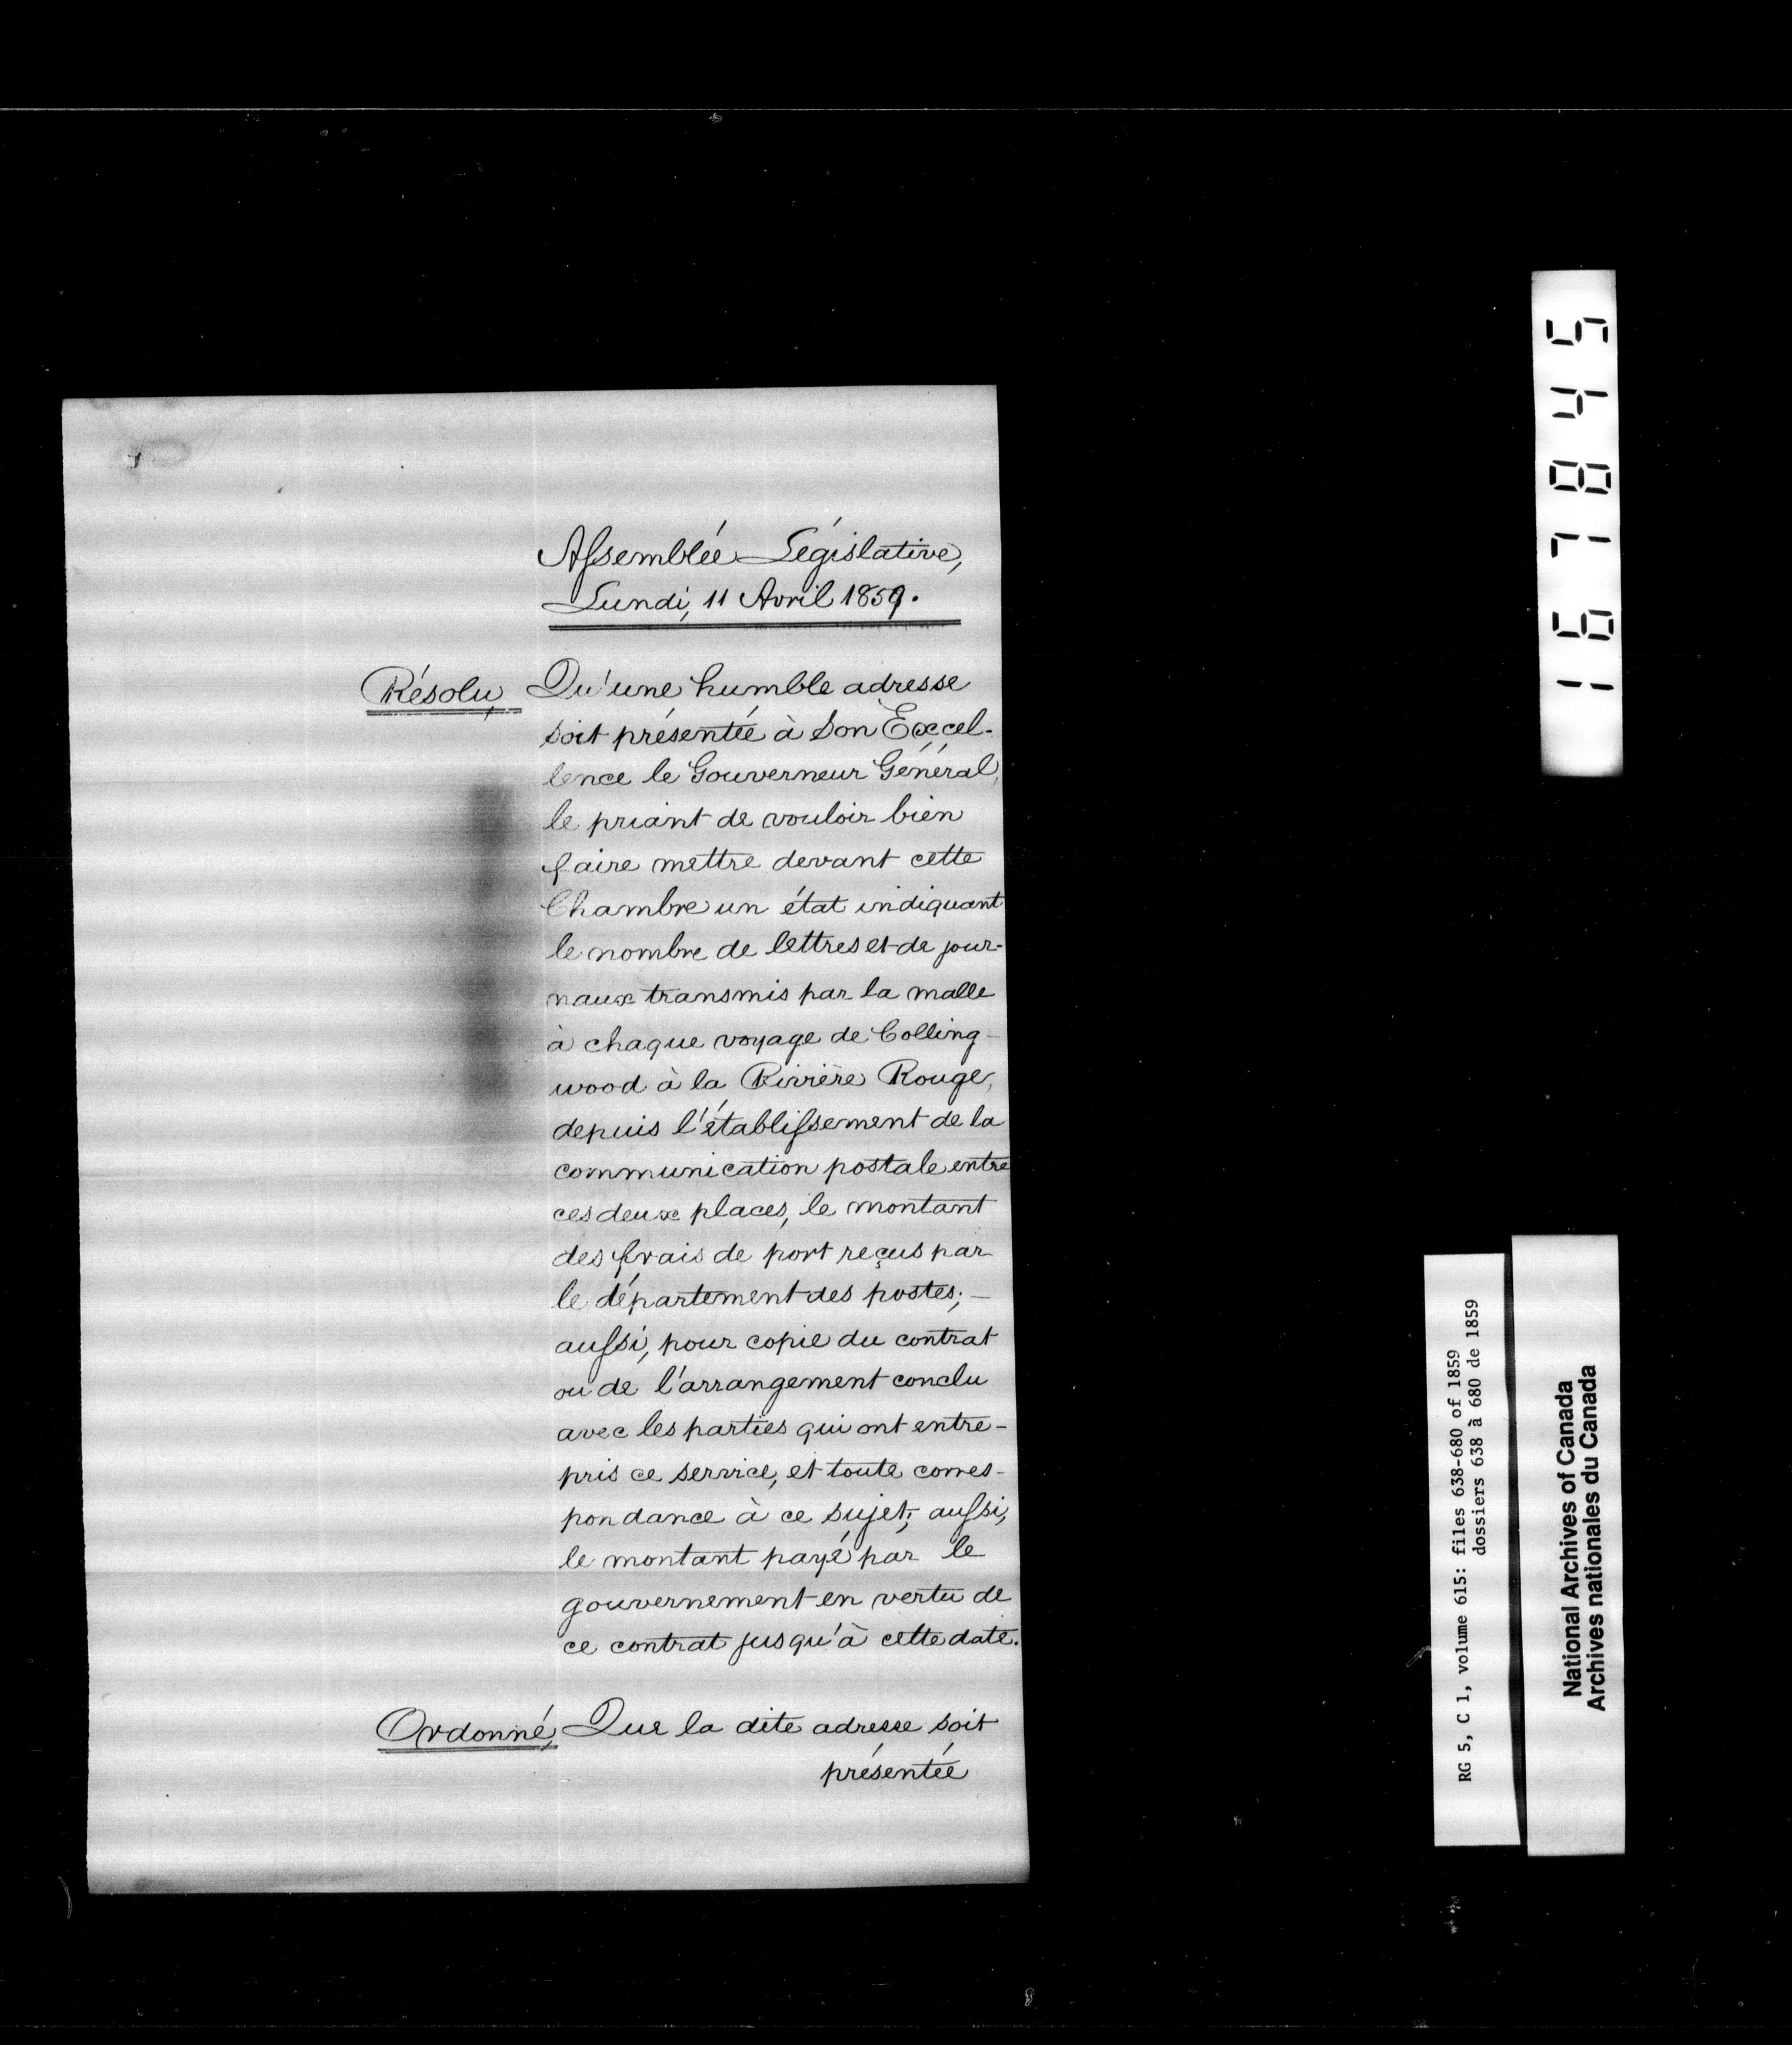 Assemblée Législative,
Lundi, 11 Avril 1859.
Résolu, Qu'une humble adresse
soit présentée à Son Excel-
lence le Gouverneur Général,
le priant de vouloir bien
faire mettre devant cette
Chambre un état indiquant
le nombre de lettres et de jour-
naux transmis par la malle
à chaque voyage de Colling-
wood à la Rivière Rouge,
depuis l'établissement de la
communication postale entre
ces deux places, le montant
des frais de port reçus par
le département des postes; -
aussi, pour copie du contrat
ou de l'arrangement conclu
avec les parties qui ont entre-
pris ce service, et toute corres-
pondance à ce sujet; aussi,
le montant payé par le
gouvernement en vertu de
ce contrat jusqu'à cette date.
Ordonné, Que la dite adresse soit
présentée
167845
RG 5, C 1, volume 615: files 638-680 of 1859
dossiers 638 à 680 de 1859
National Archives of Canada
Archives nationales du Canada